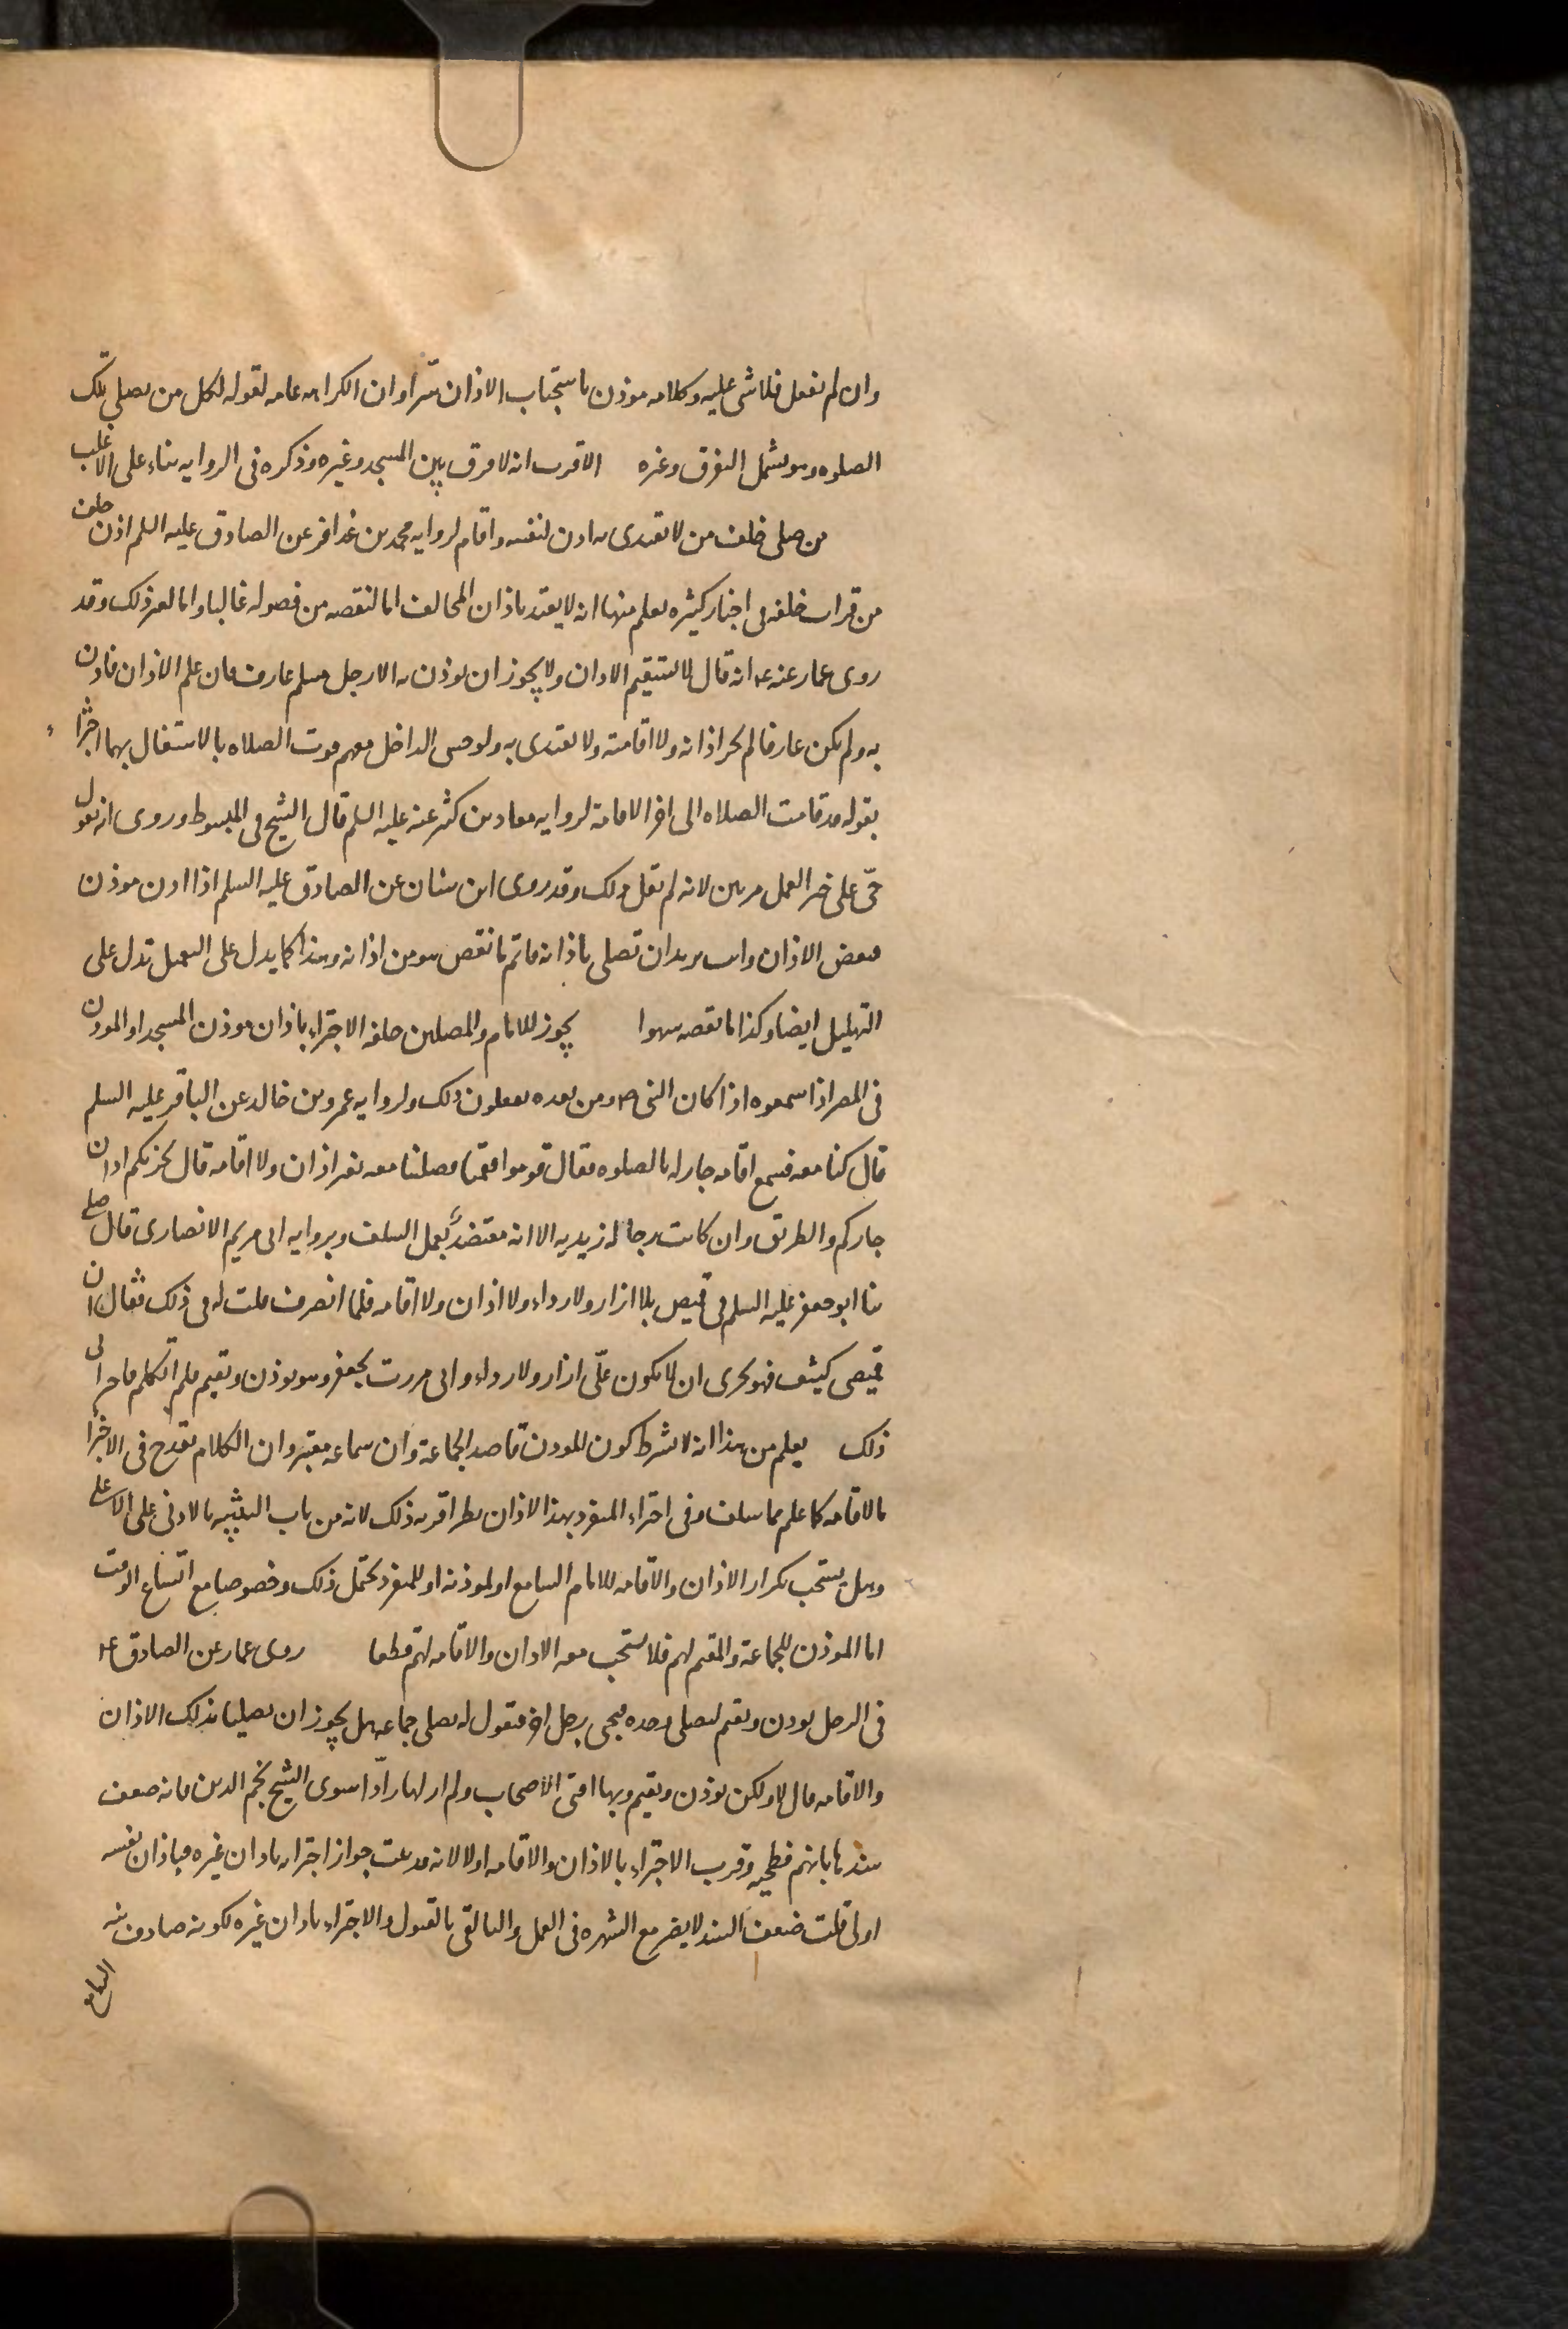 وان لم يفعل فلا شى عليه وكلامه موذن باستحباب الاذان سرا وان الكراهه عامه لقوله لكل من يصلي تلك
الصلوه وهو يشمل التفرق وغيره الاقرب انه لا فرق بين المسجد وغيره وذكره فى الروايه بناء على الاغلب
من صلى خلف من لا يقتدى به اذن لنفسه واقام لروايه محمد بن عذافر عن الصادق عليه السلم اذن خلف
من قرات خلفه فى اخبار كثيره يعلم منها انه لا يعتد باذان المخالف اما لنقصه من فصوله غالبا واما لغير ذلك وقد
روى عمار عنه ع انه قال لا يستقيم الاذان ولا يجوز ان يوذن به الا رجل مسلم عارف فان علم الاذان فاذن
به ولم يكن عارفا لم يجز اذانه ولا اقامته ولا يقتدى به ولو خشى الداخل معهم فوت الصلاه بالاشتغال بهما اجتزا
بقوله قد قامت الصلاه الى اخر الاقامة لروايه معاد بن كثير عنه عليه السلم قال الشيخ فى المبسوط وروى انه يقول
حىّ على خير العمل مرتين لانه لم يقل ذلك وقد روى ابن سنان عن الصادق عليه السلم اذا اذن موذن
فنقص الاذان وانت تريد ان تصلى باذانه فاتم ما نقص هو من اذانه وهذا كما يدل على التعميل تدل على
التهليل ايضا وكذا ما نقصه سهوا يجوز للامام والمصلين خلفه الاجتزاء باذان موذن المسجد او الموذن
فى المصر اذا سمعوه اذا كان النبى ص ومن بعده يفعلون ذلك ولروايه عمرو بن خالد عن الباقر عليه السلم
قال كنا معه فسمع اقامه جار له بالصلوه فقال قوموا فقمنا فصلينا معه بغير اذان ولا اقامه قال يجزيكم اذان
جاركم والطريق وان كانت رجاله زيديه الا انه معتضد بعمل السلف وبروايه ابى مريم الانصارى قال صلى
بنا ابو جعفر عليه السلم فى قميص بلا ازار ولا رداء ولا اذان ولا اقامه فلما انصرف قلت له فى ذلك فقال ان
قميصى كثيف فهو يجزى ان لا يكون علىّ ازار ولا رداء وانى مررت بجعفر وهو يوذن ويقيم فلم اتكلم فاجزانى
ذلك يعلم من هذا انه لا يشترط كون الموذن قاصد الجماعة وان سماعه معتبر وان الكلام يقدح فى الاجتزا
بالاقامه كما علم مما سلف وفى اجتزاء المنفرد بهذا الاذان نظر اقربه ذلك لانه من باب التنبيه بالادنى على الاعلى
وهل يستحب تكرار الاذان والاقامه للامام السامع او لموذنه او للمنفرد يحتمل ذلك وخصوصا مع اتساع الوقت
اما الموذن للجماعة والمقيم لهم فلا يستحب معه الاذان والاقامه لهم قطعا روى عمار عن الصادق ع
فى الرجل يوذن ويقيم ليصلى وحده فيجى رجل اخر فيقول له نصلى جماعه هل يجوز ان يصليا بذلك الاذان
والاقامه قال لا ولكن يوذن ويقيم وبها افتى الاصحاب ولم ار لها رادّا سوى الشيخ نجم الدين فانه ضعف
سندها بانهم فطحيه وقرب الاجتزاء بالاذان والاقامه اولا لانه قد ثبت جواز اجتزاه باذان غيره فباذان نفسه
اولى قلت ضعف السند لا يضر مع الشهره فى العمل والتلقى بالقبول والاجتزاء باذان غيره لكونه صادف نيه
السامع